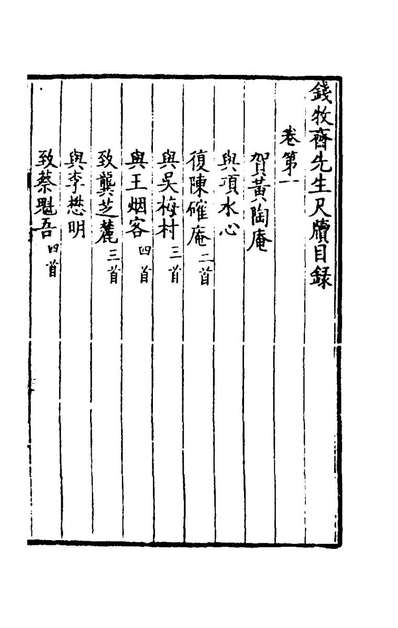 錢牧齋先生尺牘目録
卷第一
賀黃陶庵
與項水心
復陳確庵二首
與吳梅村三首
與王烟客四首
致龔芝麓三首
與李懋明
致蔡魁吾四首